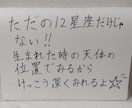 ただの12星座だけじゃ
ない!!
生まれた時の天体の
位置でみるから
けっこう深くみれるよ☆